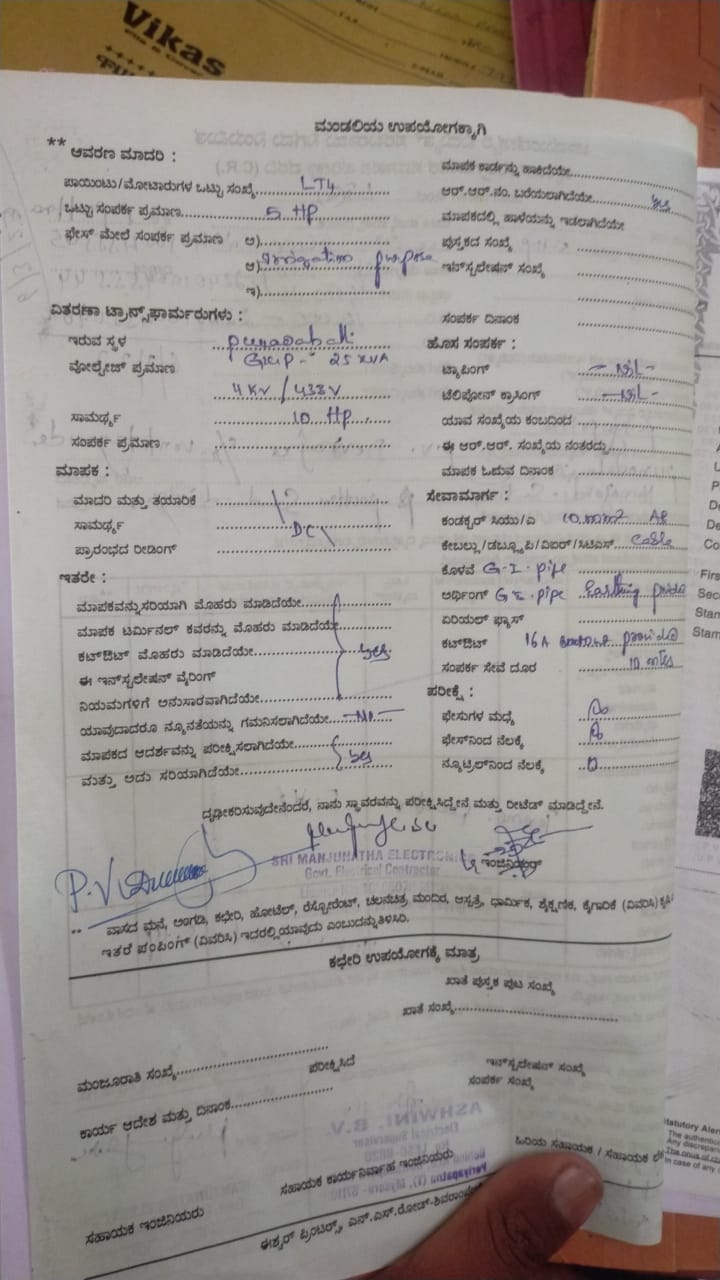 Vikas
ಮಂಡಲಿಯ ಉಪಯೋಗಕ್ಕಾಗಿ
** ಆವರಣ ಮಾದರಿ :
ಪಾಯಿಂಟು/ಮೋಟಾರುಗಳ ಒಟ್ಟು ಸಂಖ್ಯೆ LT4
ಒಟ್ಟು ಸಂಪರ್ಕ ಪ್ರಮಾಣ 5 HP
ಫೇಸ್ ಮೇಲೆ ಸಂಪರ್ಕ ಪ್ರಮಾಣ ಅ)
ಆ) Irrigation purpose
ಇ)
ವಿತರಣಾ ಟ್ರಾನ್ಸ್‌ಫಾರ್ಮರುಗಳು :
ಇರುವ ಸ್ಥಳ
ವೋಲ್ಟೇಜ್ ಪ್ರಮಾಣ 25 KVA
KV / 433 V
ಸಾಮರ್ಥ್ಯ 10 HP
ಸಂಪರ್ಕ ಪ್ರಮಾಣ
ಮಾಪಕ :
ಮಾದರಿ ಮತ್ತು ತಯಾರಿಕೆ
ಸಾಮರ್ಥ್ಯ DC
ಪ್ರಾರಂಭದ ರೀಡಿಂಗ್
ಇತರೇ :
ಮಾಪಕವನ್ನು ಸರಿಯಾಗಿ ಮೊಹರು ಮಾಡಿದೆಯೇ
ಮಾಪಕ ಟರ್ಮಿನಲ್ ಕವರನ್ನು ಮೊಹರು ಮಾಡಿದೆಯೇ
ಕಟ್‌ಔಟ್ ಮೊಹರು ಮಾಡಿದೆಯೇ yes
ಈ ಇನ್‌ಸ್ಟಲೇಷನ್ ವೈರಿಂಗ್
ನಿಯಮಗಳಿಗೆ ಅನುಸಾರವಾಗಿದೆಯೇ
ಯಾವುದಾದರೂ ನ್ಯೂನತೆಯನ್ನು ಗಮನಿಸಲಾಗಿದೆಯೇ -No-
ಮಾಪಕದ ಆದರ್ಶವನ್ನು ಪರೀಕ್ಷಿಸಲಾಗಿದೆಯೇ
ಮತ್ತು ಅದು ಸರಿಯಾಗಿದೆಯೇ yes
ಮಾಪಕ ಕಾರ್ಡನ್ನು ಹಾಕಿದೆಯೇ
ಆರ್.ಆರ್.ನಂ. ಬರೆಯಲಾಗಿದೆಯೇ yes
ಮಾಪಕದಲ್ಲಿ ಹಾಳೆಯನ್ನು ಇಡಲಾಗಿದೆಯೇ
ಪುಸ್ತಕದ ಸಂಖ್ಯೆ :
ಇನ್‌ಸ್ಟಲೇಷನ್ ಸಂಖ್ಯೆ :
ಸಂಪರ್ಕ ದಿನಾಂಕ :
ಹೊಸ ಸಂಪರ್ಕ :
ಟ್ಯಾಪಿಂಗ್ -Nil-
ಟೆಲಿಫೋನ್ ಕ್ರಾಸಿಂಗ್ -Nil-
ಯಾವ ಸಂಖ್ಯೆಯ ಕಂಬದಿಂದ
ಈ ಆರ್.ಆರ್. ಸಂಖ್ಯೆಯ ನಂತರದ್ದು
ಮಾಪಕ ಓದುವ ದಿನಾಂಕ
ಸೇವಾಮಾರ್ಗ :
ಕಂಡಕ್ಟರ್ ಸಿಯು/ಎ 10 mm2 Al
ಕೇಬಲ್ಲು/ಡಬ್ಲ್ಯೂಪಿ/ವಿಐಆರ್/ಸಿಟಿಎಸ್ Cable
ಕೊಳವೆ G.I. pipe
ಅರ್ಥಿಂಗ್ G.I. pipe Earthing
ಏರಿಯಲ್ ಫ್ಯೂಸ್
ಕಟ್‌ಔಟ್ 16 A
ಸಂಪರ್ಕ ಸೇವೆ ದೂರ 10 mtrs
ಪರೀಕ್ಷೆ :
ಫೇಸುಗಳ ಮಧ್ಯೆ
ಫೇಸ್‌ನಿಂದ ನೆಲಕ್ಕೆ
ನ್ಯೂಟ್ರಲ್‌ನಿಂದ ನೆಲಕ್ಕೆ 0
ದೃಢೀಕರಿಸುವುದೇನೆಂದರೆ, ನಾನು ಸ್ಥಾವರವನ್ನು ಪರೀಕ್ಷಿಸಿದ್ದೇನೆ ಮತ್ತು ರೀಟೆಡ್ ಮಾಡಿದ್ದೇನೆ.
SRI MANJUNATHA ELECTRON
Govt. Electrical Contractor
ಇಂಜಿನಿಯರ್
** ವಾಸದ ಮನೆ, ಅಂಗಡಿ, ಕಛೇರಿ, ಹೋಟೆಲ್, ರೆಸ್ಟೋರೆಂಟ್, ಚಲನಚಿತ್ರ ಮಂದಿರ, ಆಸ್ಪತ್ರೆ, ಧಾರ್ಮಿಕ, ಶೈಕ್ಷಣಿಕ, ಕೈಗಾರಿಕೆ (ವಿವರಿಸಿ)
ಇತರೆ ಪಂಪಿಂಗ್ (ವಿವರಿಸಿ) ಇದರಲ್ಲಿ ಯಾವುದು ಎಂಬುದನ್ನು ತಿಳಿಸಿರಿ.
ಕಛೇರಿ ಉಪಯೋಗಕ್ಕೆ ಮಾತ್ರ
ಖಾತೆ ಪುಸ್ತಕ ಪುಟ ಸಂಖ್ಯೆ
ಖಾತೆ ಸಂಖ್ಯೆ
ಮಂಜೂರಾತಿ ಸಂಖ್ಯೆ
ಪರೀಕ್ಷಿಸಿದೆ
ಇನ್‌ಸ್ಟಲೇಷನ್ ಸಂಖ್ಯೆ
ಸಂಪರ್ಕ ಸಂಖ್ಯೆ
ಕಾರ್ಯ ಆದೇಶ ಮತ್ತು ದಿನಾಂಕ
ASHWINI. B.V.
Electrical Supervisor
ಸಹಾಯಕ ಇಂಜಿನಿಯರು
ಸಹಾಯಕ ಕಾರ್ಯನಿರ್ವಾಹ ಇಂಜಿನಿಯರು
ಹಿರಿಯ ಸಹಾಯಕ / ಸಹಾಯಕ
Periyapatna
ಈಶ್ವರ್ ಪ್ರಿಂಟರ್ಸ್, ಎನ್.ಎಸ್.ರೋಡ್
Firs
Sec
Stan
Stam
tatutory Aler
The authentic
Any discrepan
The onus of ch
In case of any